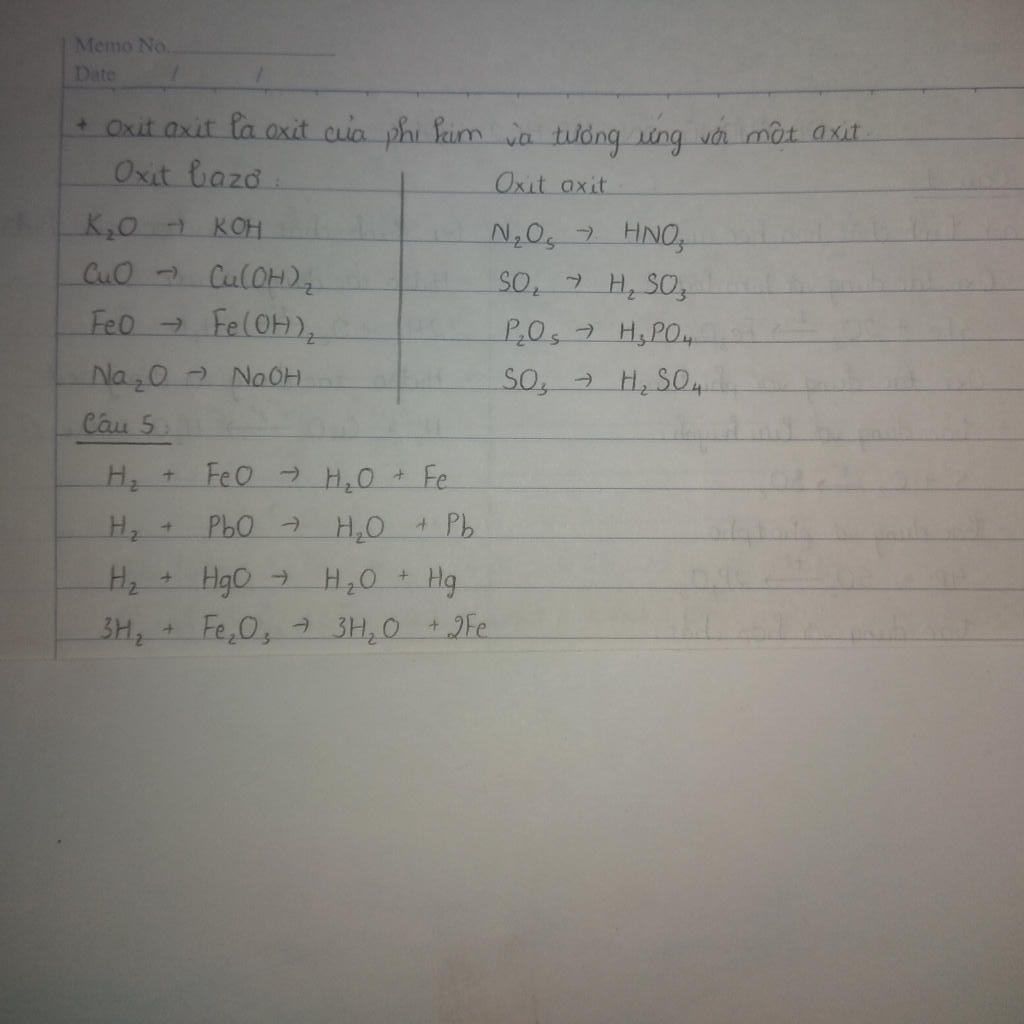 Memo No.
Date / /
+ Oxit axit là oxit của phi kim và tương ứng với một axit.
Oxit bazơ: Oxit axit
K₂O → KOH N₂O₅ → HNO₃
CuO → Cu(OH)₂ SO₂ → H₂SO₃
FeO → Fe(OH)₂ P₂O₅ → H₃PO₄
Na₂O → NaOH SO₃ → H₂SO₄
Câu 5:
H₂ + FeO → H₂O + Fe
H₂ + PbO → H₂O + Pb
H₂ + HgO → H₂O + Hg
3H₂ + Fe₂O₃ → 3H₂O + 2Fe